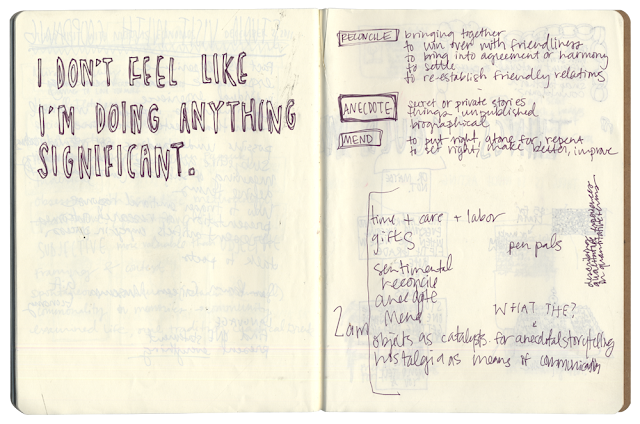 I DON'T FEEL LIKE
I'M DOING ANYTHING
SIGNIFICANT.
RECONCILE bringing together
to win over with friendliness
to bring into agreement or harmony
to settle
to re-establish friendly relations
ANECDOTE secret or private stories
things unpublished
biographical
MEND to put right, atone for, repent
to set right, make better, improve
time + care + labor
gifts
pen pals
sentimental
reconcile
anecdote
mend
2am
WHAT THE?
objects as catalysts for anecdotal storytelling
nostalgia as means of communication